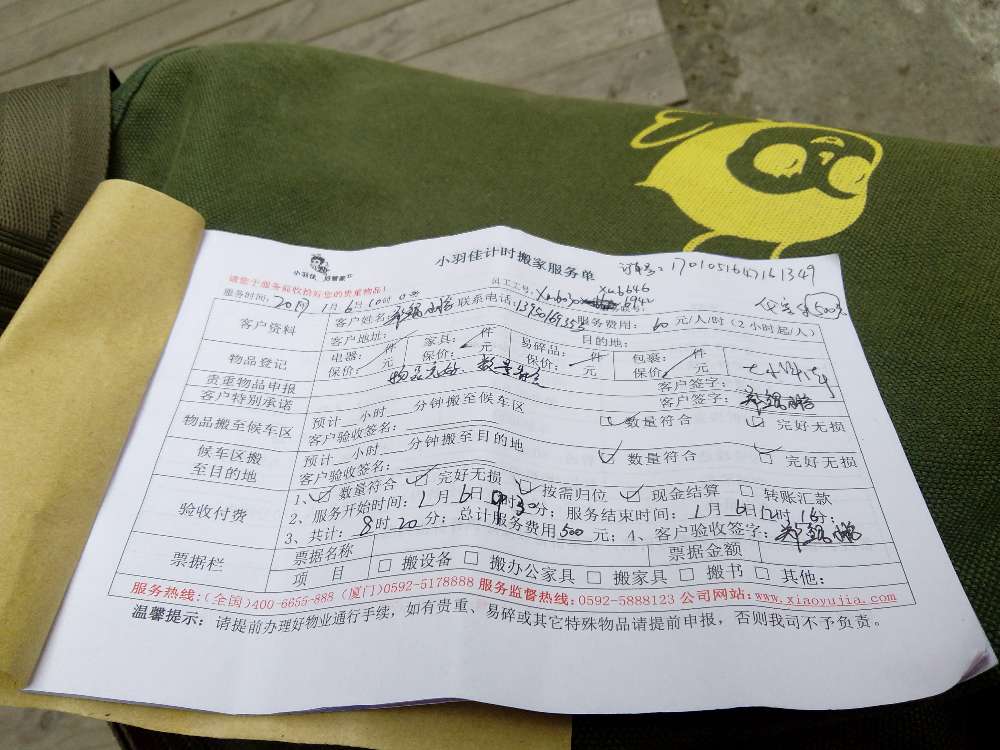 小羽佳计时搬家服务单 订单号:170105164716 1349
小羽佳 好管家
请您于服务前收拾好您的贵重物品!
员工工号: xub646
服务时间: 2017年1月6日10时0分
客户资料 客户姓名: 联系电话: 服务费用: 60 元/人/时(2小时起/人)
客户地址: 目的地:
物品登记 电器: 件 家具: 件 易碎品: 件 包裹: 件
保价: 元 保价: 元 保价: 元 保价: 元
贵重物品申报 物品完好 数量符合 客户签字:
客户特别承诺 客户签字:
物品搬至候车区 预计 小时 分钟搬至候车区 数量符合 完好无损
客户验收签名:
候车区搬至目的地 预计 小时 分钟搬至目的地 数量符合 完好无损
客户验收签名:
验收付费 1、 数量符合 完好无损 按需归位 现金结算 转账汇款
2、服务开始时间: 1月6日 时30分; 服务结束时间: 1月6日 12时16分;
3、共计: 8时20分; 总计服务费用 500 元; 4、客户验收签字:
票据栏 票据名称 票据金额
项目 搬设备 搬办公家具 搬家具 搬书 其他:
服务热线:(全国)400-6655-888 (厦门)0592-5178888 服务监督热线:0592-5888123 公司网站:www.xiaoyujia.com
温馨提示:请提前办理好物业通行手续,如有贵重、易碎或其它特殊物品请提前申报,否则我司不予负责。